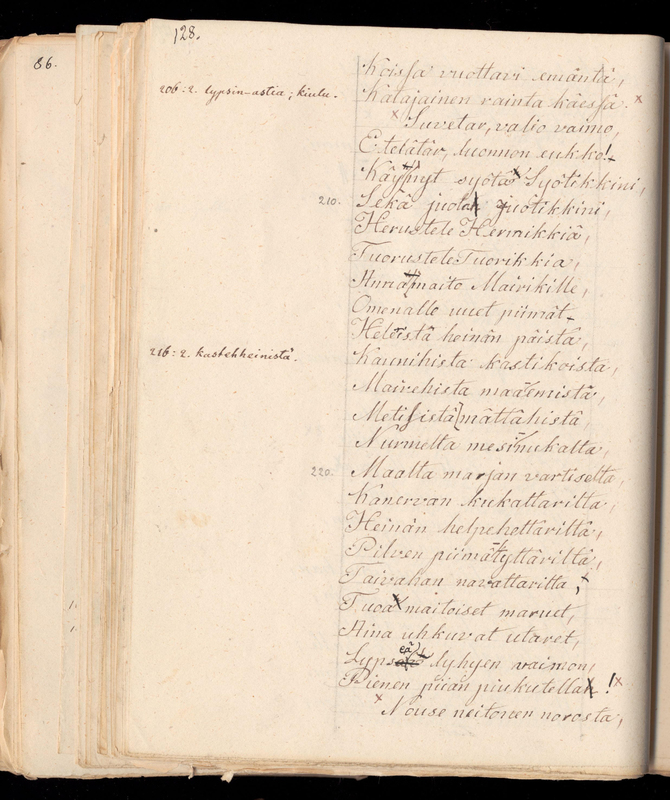 128.
86.
Koissa vuottavi emäntä,
206:2. lypsin-astia; kiulu.
Katajainen rainta käessä.
Suvetar, valio vaimo,
Etelätär, luonnon eukko!
Käynyt syötä Syötikkini,
210. Sekä juota juotikkini,
Herustele Hermikkiä,
Tuorustele Tuorikkia,
Anna maito Mairikille,
Omenalle uuet piimät
Heleistä heinän päistä,
216:2. kastehheinistä.
Kaunihista kastikoista,
Mairehista maaemistä,
Metisistä mättähistä,
Nurmelta mesinukalta,
220. Maalta marjan vartiselta,
Kanervan kukattarilta,
Heinän helpehettäriltä,
Pilven piimätyttäriltä,
Taivahan navattarilta;
Tuoa maitoiset maruet,
Aina uhkuvat utaret,
Lypseä lyhyen vaimon,
Pienen piian piukutella!
Nouse neitonen norosta,